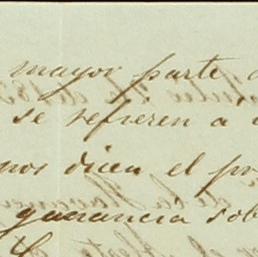 mayor parte d
se refieren a
nos dicen el pr
ganancia sob